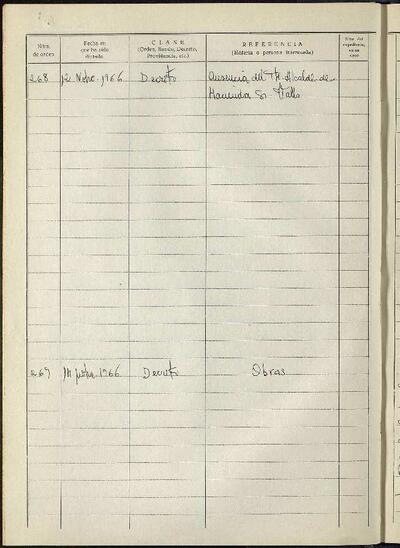 Núm. de orden
Fecha en que ha sido dictada
CLASE
(Orden, Bando, Decreto, Providencia, etc.)
REFERENCIA
(Materia o persona interesada)
Núm. del expediente, en su caso
268 12 1966 Decreto Ausencia del Tte Alcalde de
Hacienda Sr.
269 14 1966 Decreto Obras